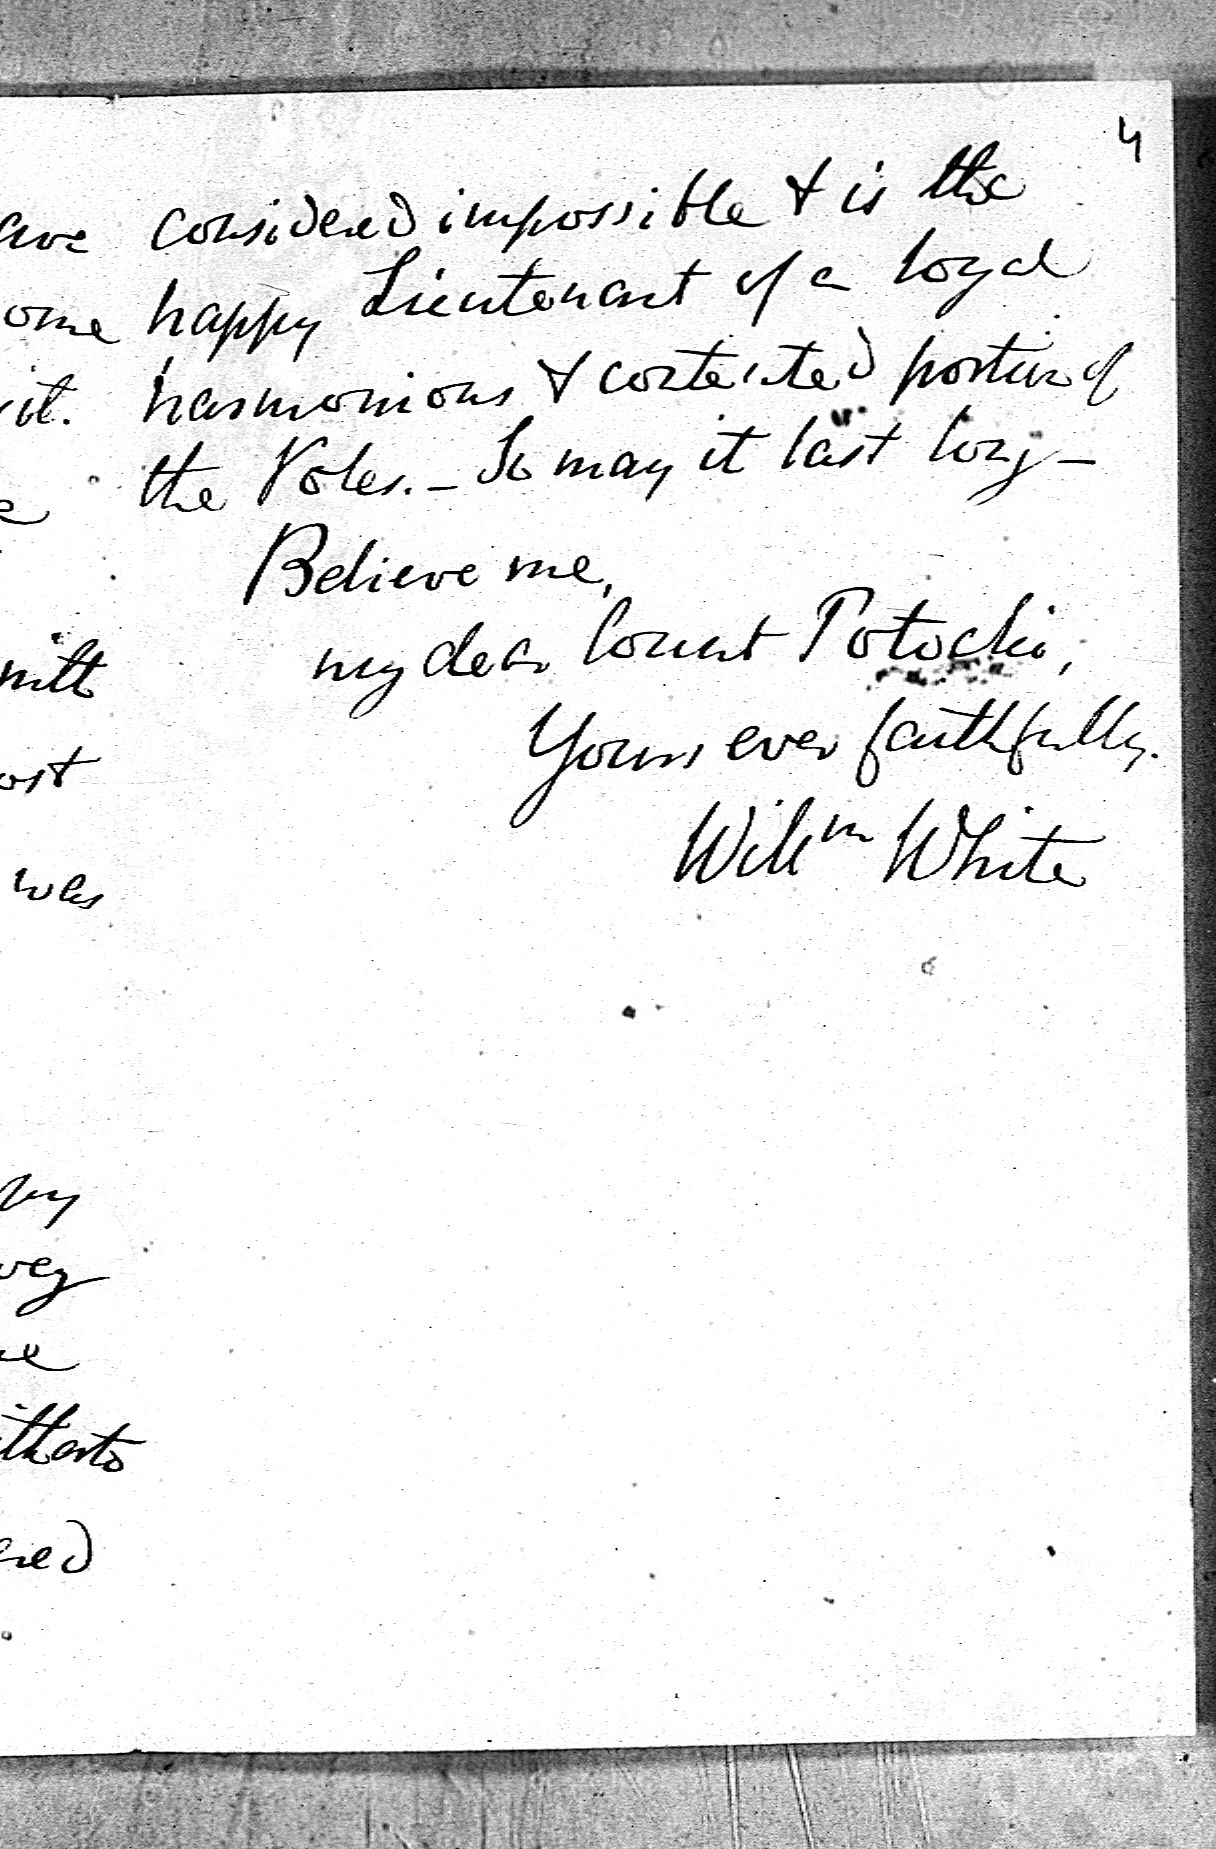 4
considered impossible & is the
happy Lieutenant of a loyal
harmonious & contented portion of
the Poles. _ So may it last long _
Believe me,
my dear Count Potocki,
Yours ever faithfully.
Willm White
ome
it.
ost
was
by
itherto
ered